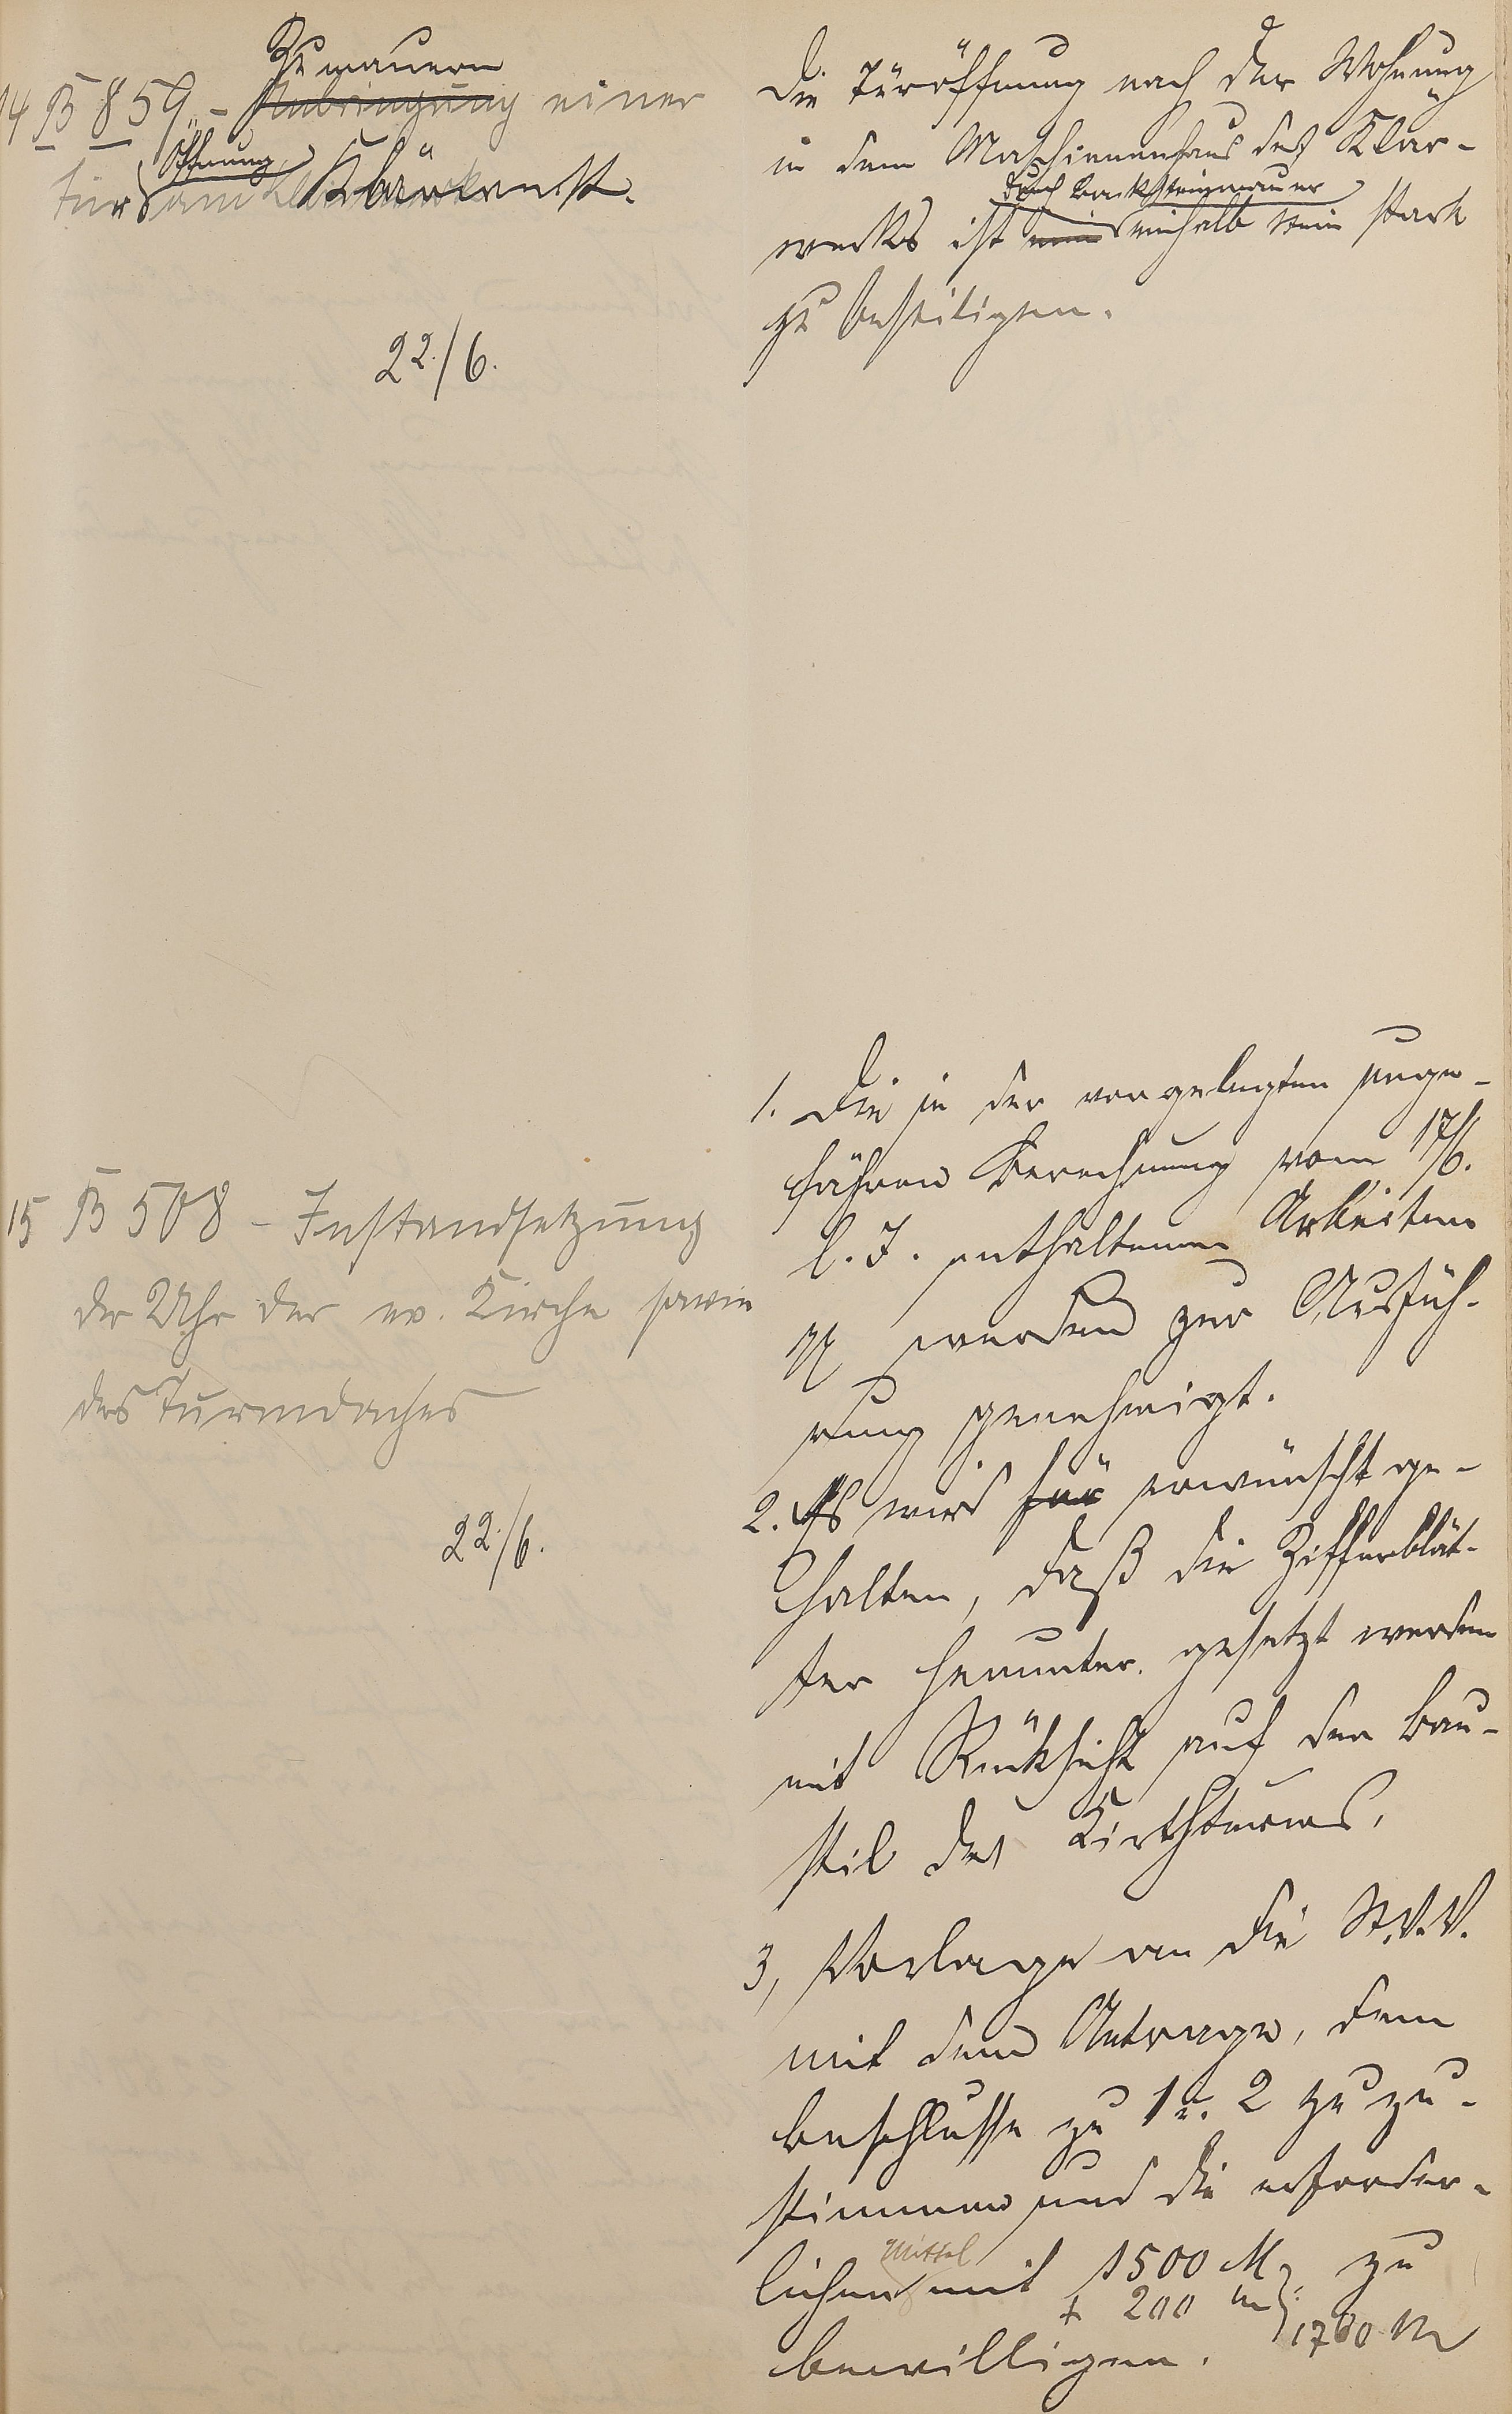 Zumauern
14 B 859. - Anbringung einer
Öffnung
Tür am Klärwerk.
22./6.
Die Türöffnung nach der Wohnung
in dem Maschinenhaus des Klär-
durch Backsteinmauer
werks ist ein einhalb Stein stark
zu beseitigen.
15 B 508 - Instandsetzung
der Uhr der ev. Kirche sowie
des Turmdaches
22./6.
1. Die in der vorgelegten unge-
fähren Berechnung vom 17/6.
l. J. enthaltenen Arbeiten
werden zur Ausfüh-
rung genehmigt.
2. Es wird für erwünscht ge-
halten, daß die Zifferblät-
ter herunter gesetzt werden
mit Rücksicht auf den Bau-
stil des Kirchturms.
3, Vorlage an die St.V.V.
mit dem Antrage, dem
Beschlusse zu 1 u. 2 zuzu-
stimmen und die erforder-
Mittel
lichen mit 1500 M zu
+ 200 M 1700 M
bewilligen.